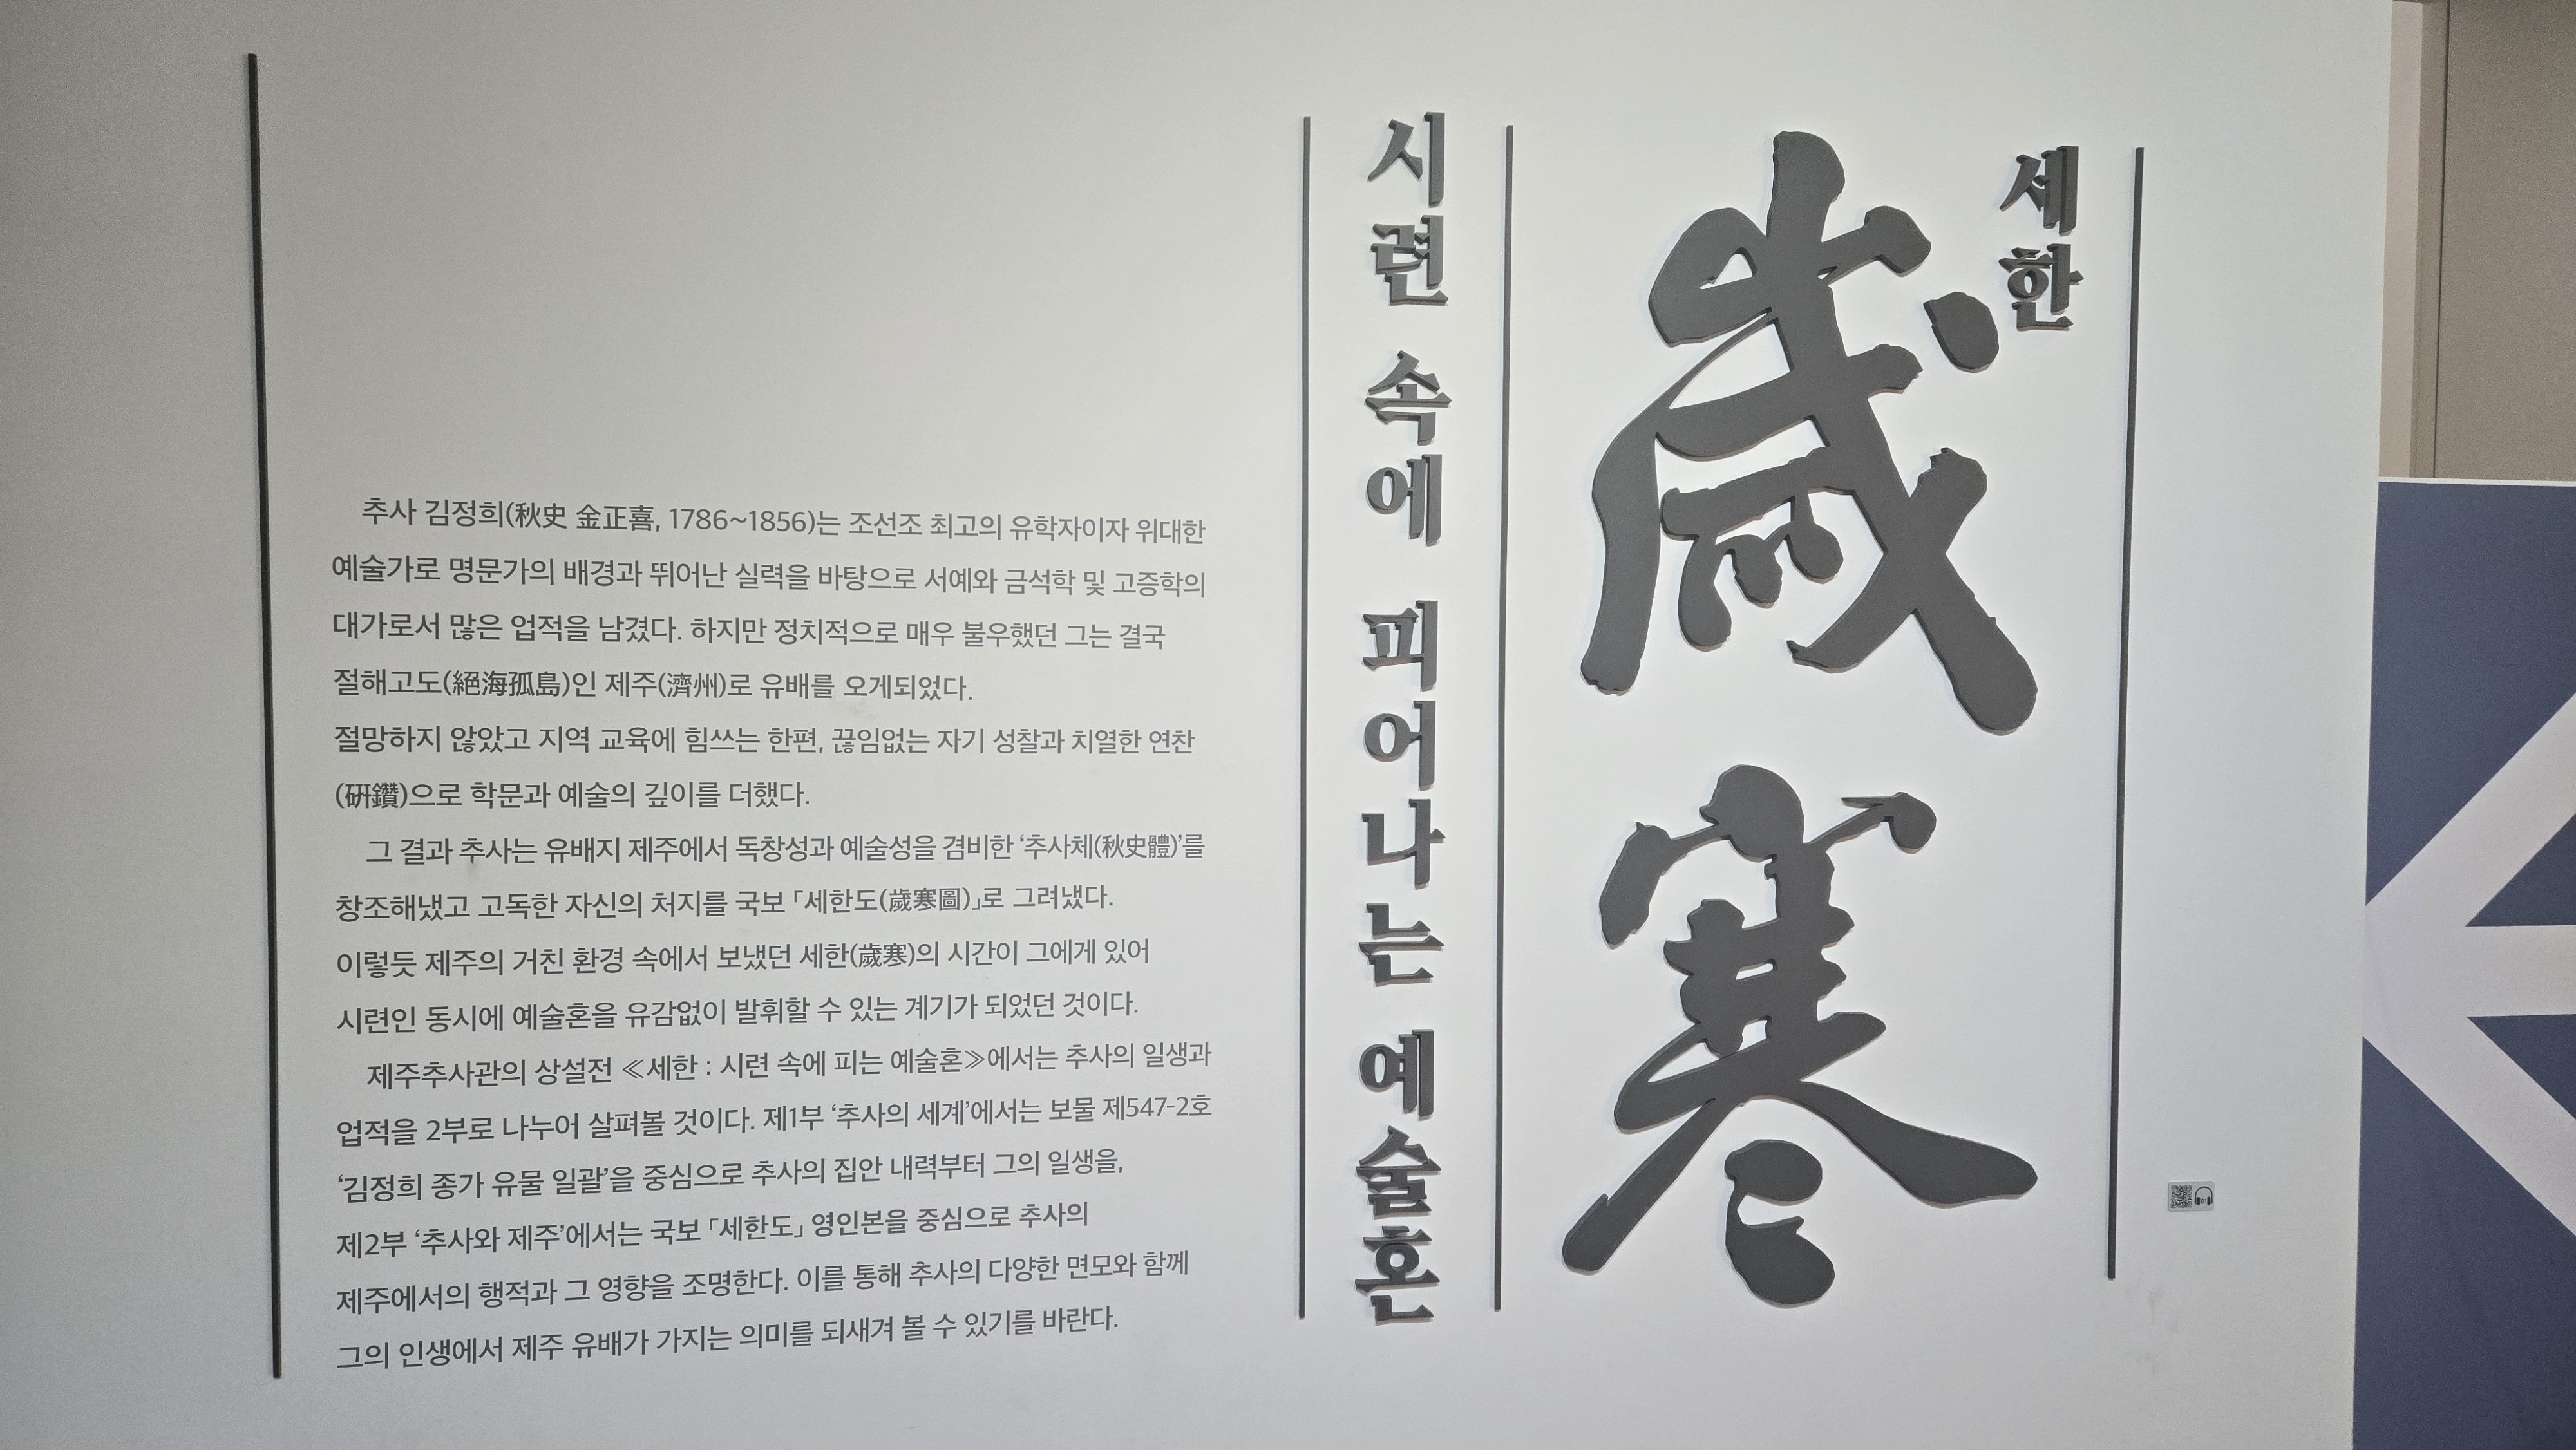 세한
歲寒
시련 속에 피어나는 예술혼
추사 김정희(秋史 金正喜, 1786~1856)는 조선조 최고의 유학자이자 위대한
예술가로 명문가의 배경과 뛰어난 실력을 바탕으로 서예와 금석학 및 고증학의
대가로서 많은 업적을 남겼다. 하지만 정치적으로 매우 불우했던 그는 결국
절해고도(絕海孤島)인 제주(濟州)로 유배를 오게되었다.
절망하지 않았고 지역 교육에 힘쓰는 한편, 끊임없는 자기 성찰과 치열한 연찬
(硏鑽)으로 학문과 예술의 깊이를 더했다.
그 결과 추사는 유배지 제주에서 독창성과 예술성을 겸비한 ‘추사체(秋史體)’를
창조해냈고 고독한 자신의 처지를 국보 「세한도(歲寒圖)」로 그려냈다.
이렇듯 제주의 거친 환경 속에서 보냈던 세한(歲寒)의 시간이 그에게 있어
시련인 동시에 예술혼을 유감없이 발휘할 수 있는 계기가 되었던 것이다.
제주추사관의 상설전 ≪세한 : 시련 속에 피는 예술혼≫에서는 추사의 일생과
업적을 2부로 나누어 살펴볼 것이다. 제1부 ‘추사의 세계’에서는 보물 제547-2호
‘김정희 종가 유물 일괄’을 중심으로 추사의 집안 내력부터 그의 일생을,
제2부 ‘추사와 제주’에서는 국보 「세한도」 영인본을 중심으로 추사의
제주에서의 행적과 그 영향을 조명한다. 이를 통해 추사의 다양한 면모와 함께
그의 인생에서 제주 유배가 가지는 의미를 되새겨 볼 수 있기를 바란다.